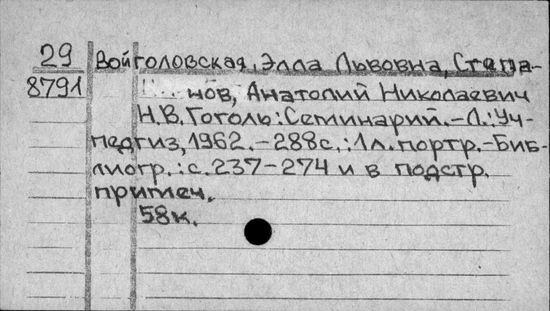 29 Войголовская, Элла Львовна, Степа-
8791 нов, Анатолий Николаевич
Н.В. Гоголь: Семинарий.-Л.: Уч-
педгиз, 1962.-288с.: 1л. портр.-Биб-
лиогр.: с. 237-274 и в подстр.
примеч.
58к.